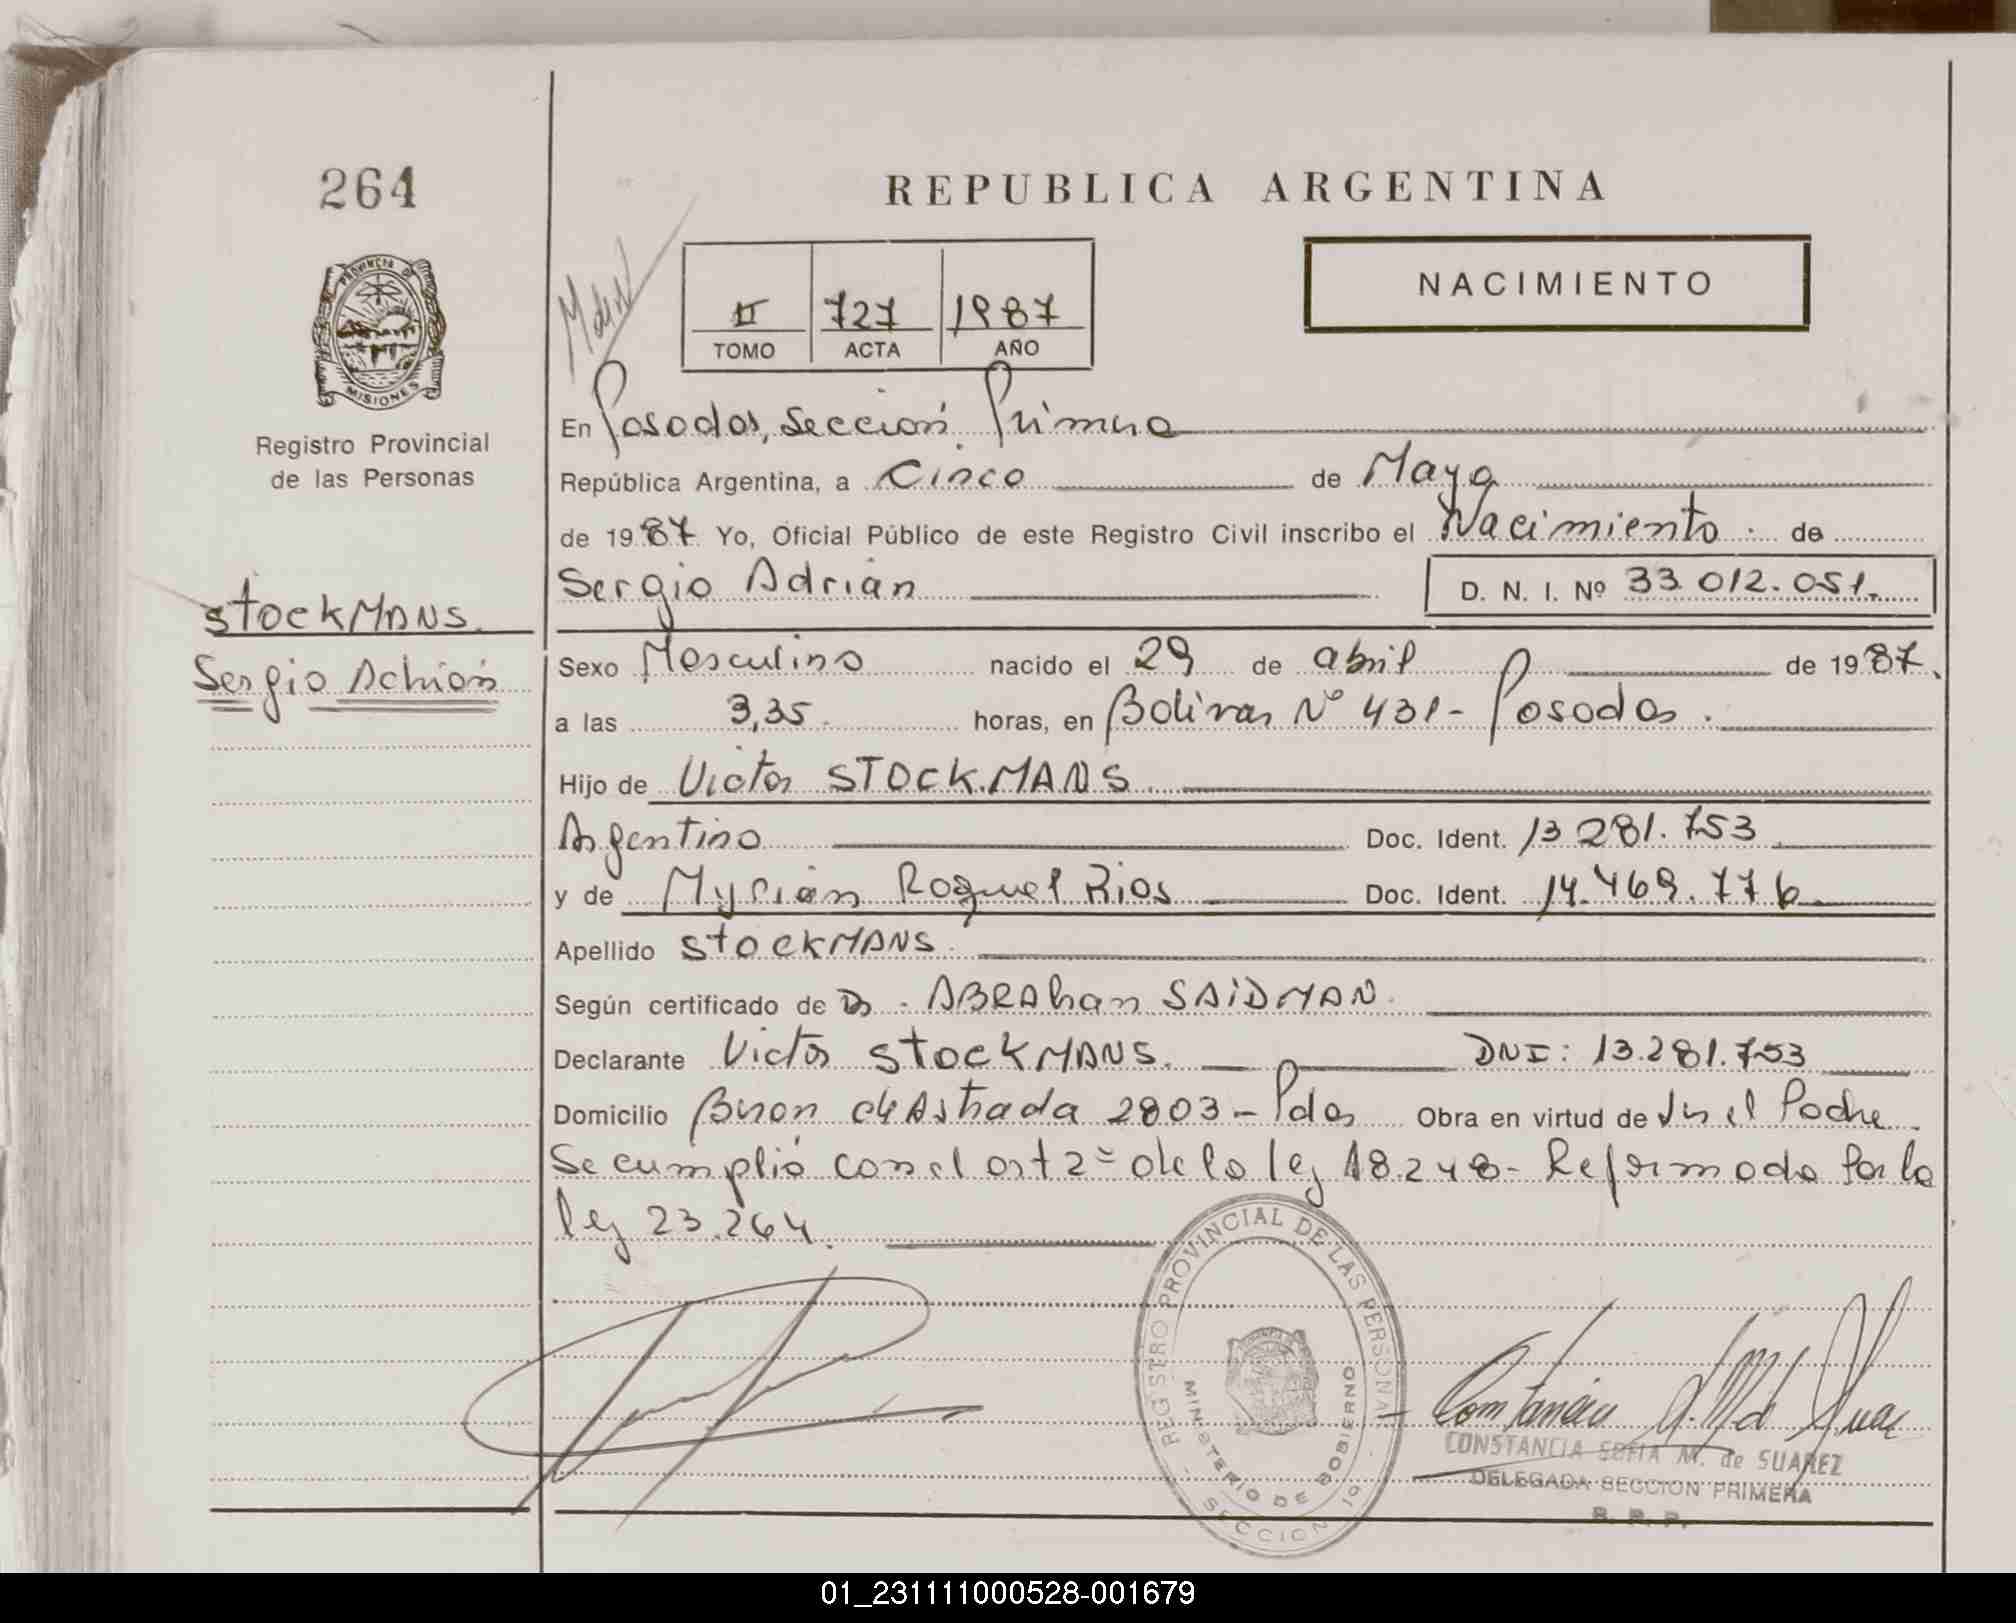 264
REPUBLICA ARGENTINA
NACIMIENTO
II 727 1987
TOMO ACTA AÑO
PROVINCIA DE
MISIONES
Registro Provincial
de las Personas
En Posadas, Sección Primera
República Argentina, a Cinco de Mayo
de 1987 Yo, Oficial Público de este Registro Civil inscribo el Nacimiento de
Sergio Adrián D. N. I. Nº 33.012.051.
STOCKMANS.
Sergio Adrián
Sexo Masculino nacido el 29 de abril de 1987.
a las 3,35. horas, en Bolivar Nº 431- Posadas.
Hijo de Victor STOCKMANS
Argentino Doc. Ident. 13.281.753
y de Myrian Raquel Rios Doc. Ident. 14.469.776
Apellido STOCKMANS.
Según certificado de Dr. ABRAhan SAIDMAN.
Declarante Victor STOCKMANS. DNI: 13.281.753
Domicilio Beron de Astrada 2803- Pdas Obra en virtud de Ser el Padre.
Se cumplió con el art 2º de la ley 18.248- Reformada Por la
ley 23.264.
REGISTRO PROVINCIAL DE LAS PERSONAS
MINISTERIO DE GOBIERNO
SECCION 1º
CONSTANCIA SOFIA M. de SUAREZ
DELEGADA SECCION PRIMERA
R. P. P.
01_231111000528-001679